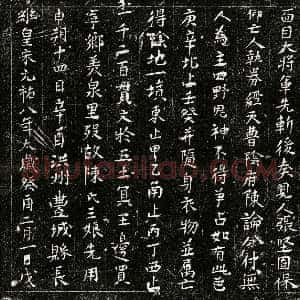 維皇宋元祐八年太歲癸酉二月一日戊
申朔十四日辛酉洪州豐城縣長
寧鄉美泉里歿故陳氏三娘先用
一千二百貫文於王冥王邊買
得陰地一墳東止甲乙南止丙丁西止
庚辛北止壬癸并隨身衣物並萬亡
人為主四野鬼神不得爭占如有此色
仰亡人執券經天曹陰府陳論分付無
面目大將軍先斬後奏見人張堅固保